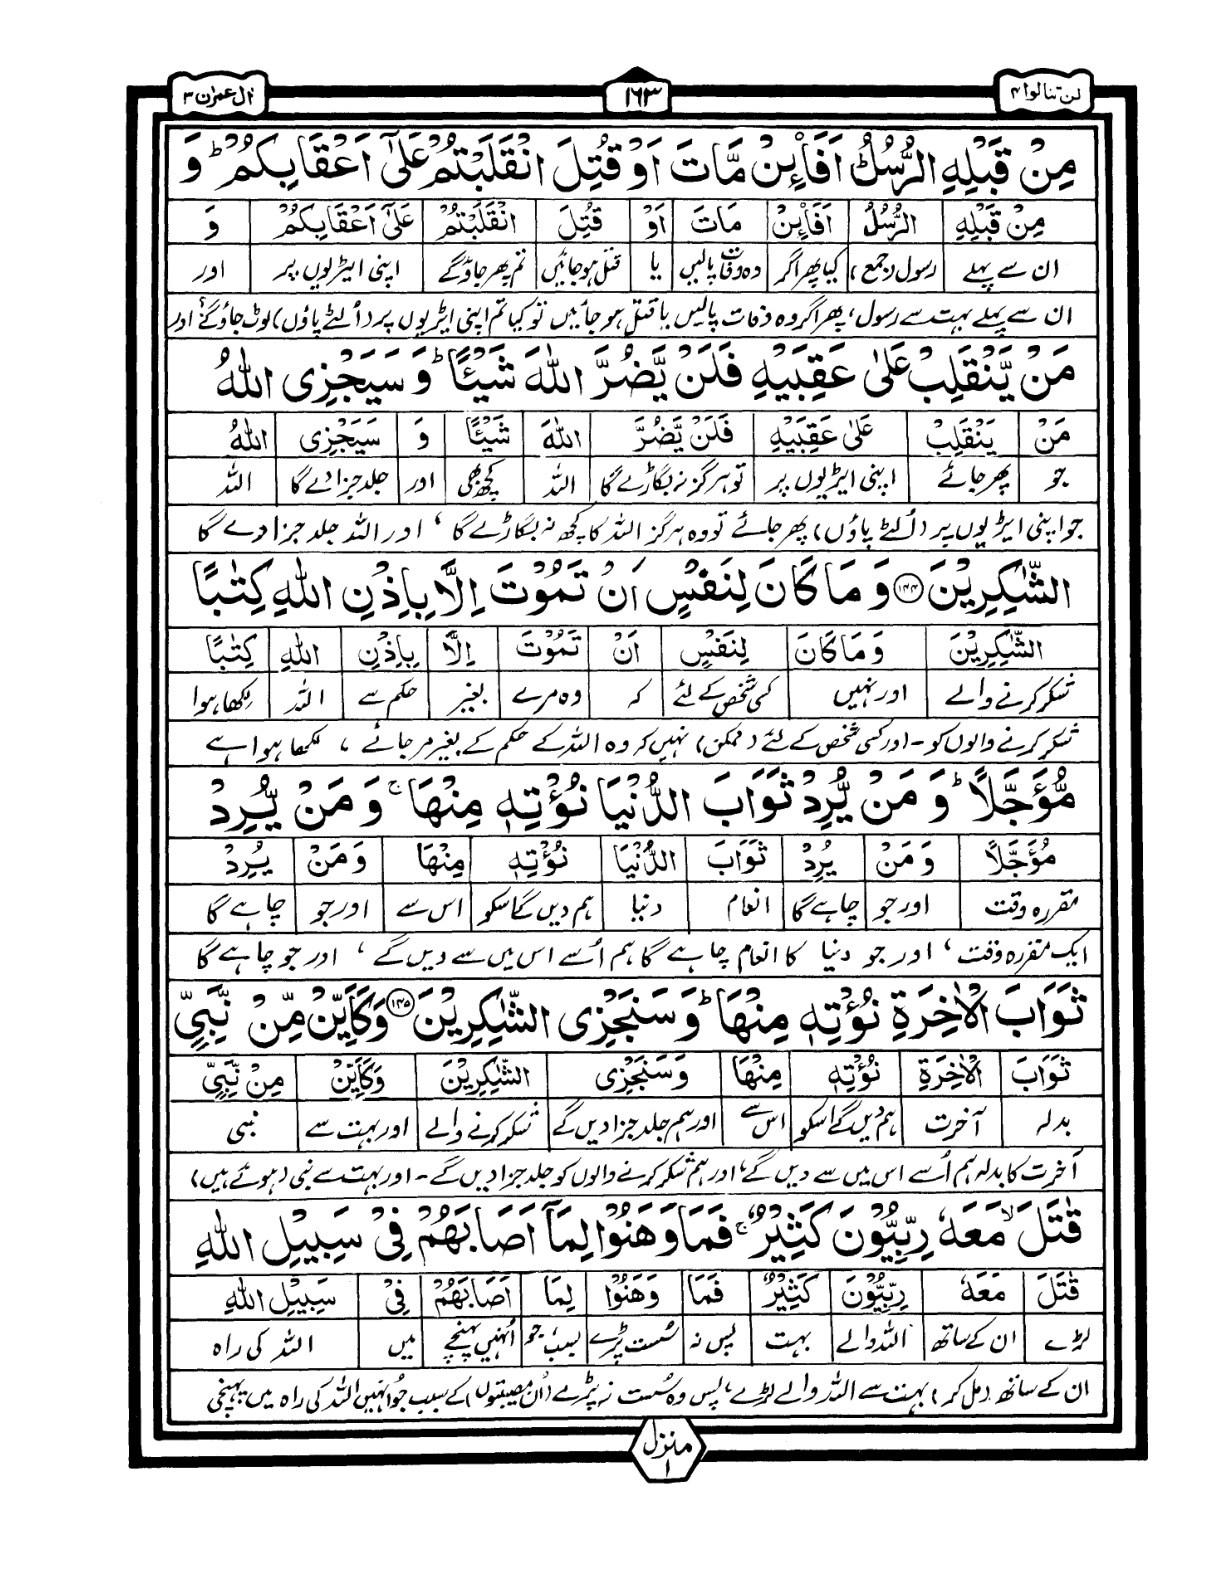 لن تنالوا ۴
۱۶۳
اٰل عمرٰن ۳
مِنْ قَبْلِهِ الرُّسُلُ ؕ اَفَا۠ئِنْ مَّاتَ اَوْ قُتِلَ انْقَلَبْتُمْ عَلٰۤى اَعْقَابِكُمْ ؕ وَ
مِنْ قَبْلِهِ الرُّسُلُ اَفَا۠ئِنْ مَاتَ اَوْ قُتِلَ انْقَلَبْتُمْ عَلٰۤى اَعْقَابِكُمْ وَ
ان سے پہلے رسول (جمع) کیا پھر اگر وہ وفات پالیں یا قتل ہو جائیں تم پھر جاؤگے اپنی ایڑیوں پر اور
ان سے پہلے بہت سے رسول، پھر اگر وہ وفات پالیں یا قتل ہو جائیں تو کیا تم اپنی ایڑیوں پر (الٹے پاؤں) لوٹ جاؤگے؟ اور
مَنْ يَّنْقَلِبْ عَلٰى عَقِبَيْهِ فَلَنْ يَّضُرَّ اللّٰهَ شَيْـًٔا ؕ وَ سَيَجْزِى اللّٰهُ
مَنْ يَنْقَلِبْ عَلٰى عَقِبَيْهِ فَلَنْ يَّضُرَّ اللّٰهَ شَيْـًٔا وَ سَيَجْزِى اللّٰهُ
جو پھر جائے اپنی ایڑیوں پر تو ہرگز نہ بگاڑے گا اللہ کچھ بھی اور جلد جزا دے گا اللہ
جو اپنی ایڑیوں پر (الٹے پاؤں) پھر جائے تو وہ ہرگز اللہ کا کچھ نہ بگاڑے گا، اور اللہ جلد جزا دے گا
الشّٰكِرِيْنَ ۝۱۴۴ وَ مَا كَانَ لِنَفْسٍ اَنْ تَمُوْتَ اِلَّا بِاِذْنِ اللّٰهِ كِتٰبًا
الشّٰكِرِيْنَ وَمَا كَانَ لِنَفْسٍ اَنْ تَمُوْتَ اِلَّا بِاِذْنِ اللّٰهِ كِتٰبًا
شکر کرنے والے اور نہیں کسی شخص کے لئے کہ وہ مرے بغیر حکم سے اللہ لکھا ہوا
شکر کرنے والوں کو - اور کسی شخص کے لئے (ممکن) نہیں کہ وہ اللہ کے حکم کے بغیر مرجائے، لکھا ہوا ہے
مُّؤَجَّلًا ؕ وَ مَنْ يُّرِدْ ثَوَابَ الدُّنْيَا نُؤْتِهٖ مِنْهَا ۚ وَ مَنْ يُّرِدْ
مُؤَجَّلًا وَمَنْ يُرِدْ ثَوَابَ الدُّنْيَا نُؤْتِهٖ مِنْهَا وَمَنْ يُرِدْ
مقررہ وقت اور جو چاہے گا انعام دنیا ہم دیں گے اسکو اس سے اور جو چاہے گا
ایک مقررہ وقت، اور جو دنیا کا انعام چاہے گا ہم اُسے اس میں سے دیں گے، اور جو چاہے گا
ثَوَابَ الْاٰخِرَةِ نُؤْتِهٖ مِنْهَا ؕ وَ سَنَجْزِى الشّٰكِرِيْنَ ۝۱۴۵ وَكَاَيِّنْ مِّنْ نَّبِيٍّ
ثَوَابَ الْاٰخِرَةِ نُؤْتِهٖ مِنْهَا وَسَنَجْزِى الشّٰكِرِيْنَ وَكَاَيِّنْ مِنْ نَّبِيٍّ
بدلہ آخرت ہم دیں گے اسکو اس سے اور ہم جلد جزا دیں گے شکر کرنے والے اور بہت سے نبی
آخرت کا بدلہ ہم اُسے اس میں سے دیں گے، اور ہم شکر کرنے والوں کو جلد جزا دیں گے - اور بہت سے نبی (ہوئے ہیں)
قٰتَلَ ۙ مَعَهٗ رِبِّيُّوْنَ كَثِيْرٌ ۚ فَمَا وَهَنُوْا لِمَاۤ اَصَابَهُمْ فِيْ سَبِيْلِ اللّٰهِ
قٰتَلَ مَعَهٗ رِبِّيُّوْنَ كَثِيْرٌ فَمَا وَهَنُوْا لِمَا اَصَابَهُمْ فِيْ سَبِيْلِ اللّٰهِ
لڑے ان کے ساتھ اللہ والے بہت پس نہ سُست پڑے بسبب جو اُنہیں پہنچے میں اللہ کی راہ
ان کے ساتھ (مل کر) بہت سے اللہ والے لڑے، پس وہ سُست نہ پڑے (اُن مصیبتوں) کے سبب جو اُنہیں اللہ کی راہ میں پہنچی
منزل ۱